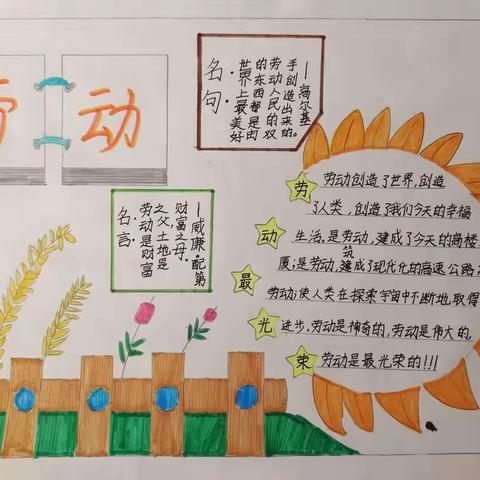 劳动
名句:
世界上最美好
的东西都是由
劳动人民的双
手创造出来的。
—高尔基
名言:
劳动是财富
之父,土地是
财富之母。
—威廉·配第
劳 劳动创造了世界,创造
了人类,创造了我们今天的幸福
动 生活,是劳动,建成了今天的高楼
筑
最 厦;是劳动,建成了现代化的高速公路
劳动,使人类在探索宇宙中不断地取得
光 进步.劳动是神奇的,劳动是伟大的,
荣 劳动是最光荣的!!!